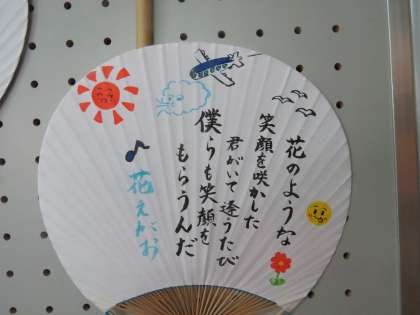 花のような
笑顔を咲かした
君がいて逢うたび
僕らも笑顔を
もらうんだ
花えがお